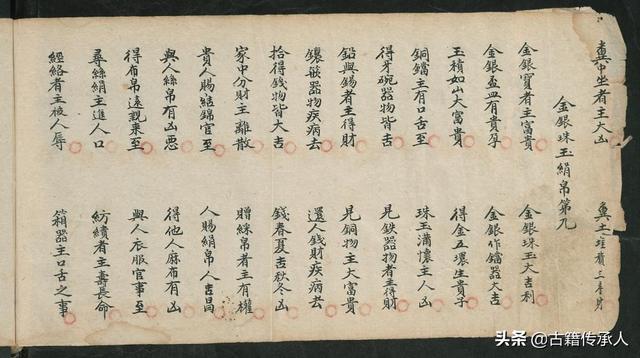 糞中坐者主大凶 糞土堆積
金銀珠玉絹帛第九
金銀寳者主富貴 金銀珠玉大吉利
金銀盃皿有貴孕 金銀作鐺器大吉
玉積如山大富貴 得金五環生貴子
銅鐺主有口舌至 珠玉滿懷主人凶
得牙碗器物皆吉 見鉄器物者主得財
鉛與錫者主得財 見銅物主大富貴
鑲嵌器物疾病去 還人錢財疾病去
拾得錢物皆大吉 錢春夏吉秋冬凶
家中分財主離散 贈綵帛者主有權
貴人賜結錦官至 人賜絹帛人吉昌
與人絲帛有凶惡 得他人麻布有凶
得布帛遠親來至 與人衣服官事至
尋絲絹主進人口 紡績者主壽長命
經絡者主被人辱 箱器主口舌之事
头条 @古籍传承人